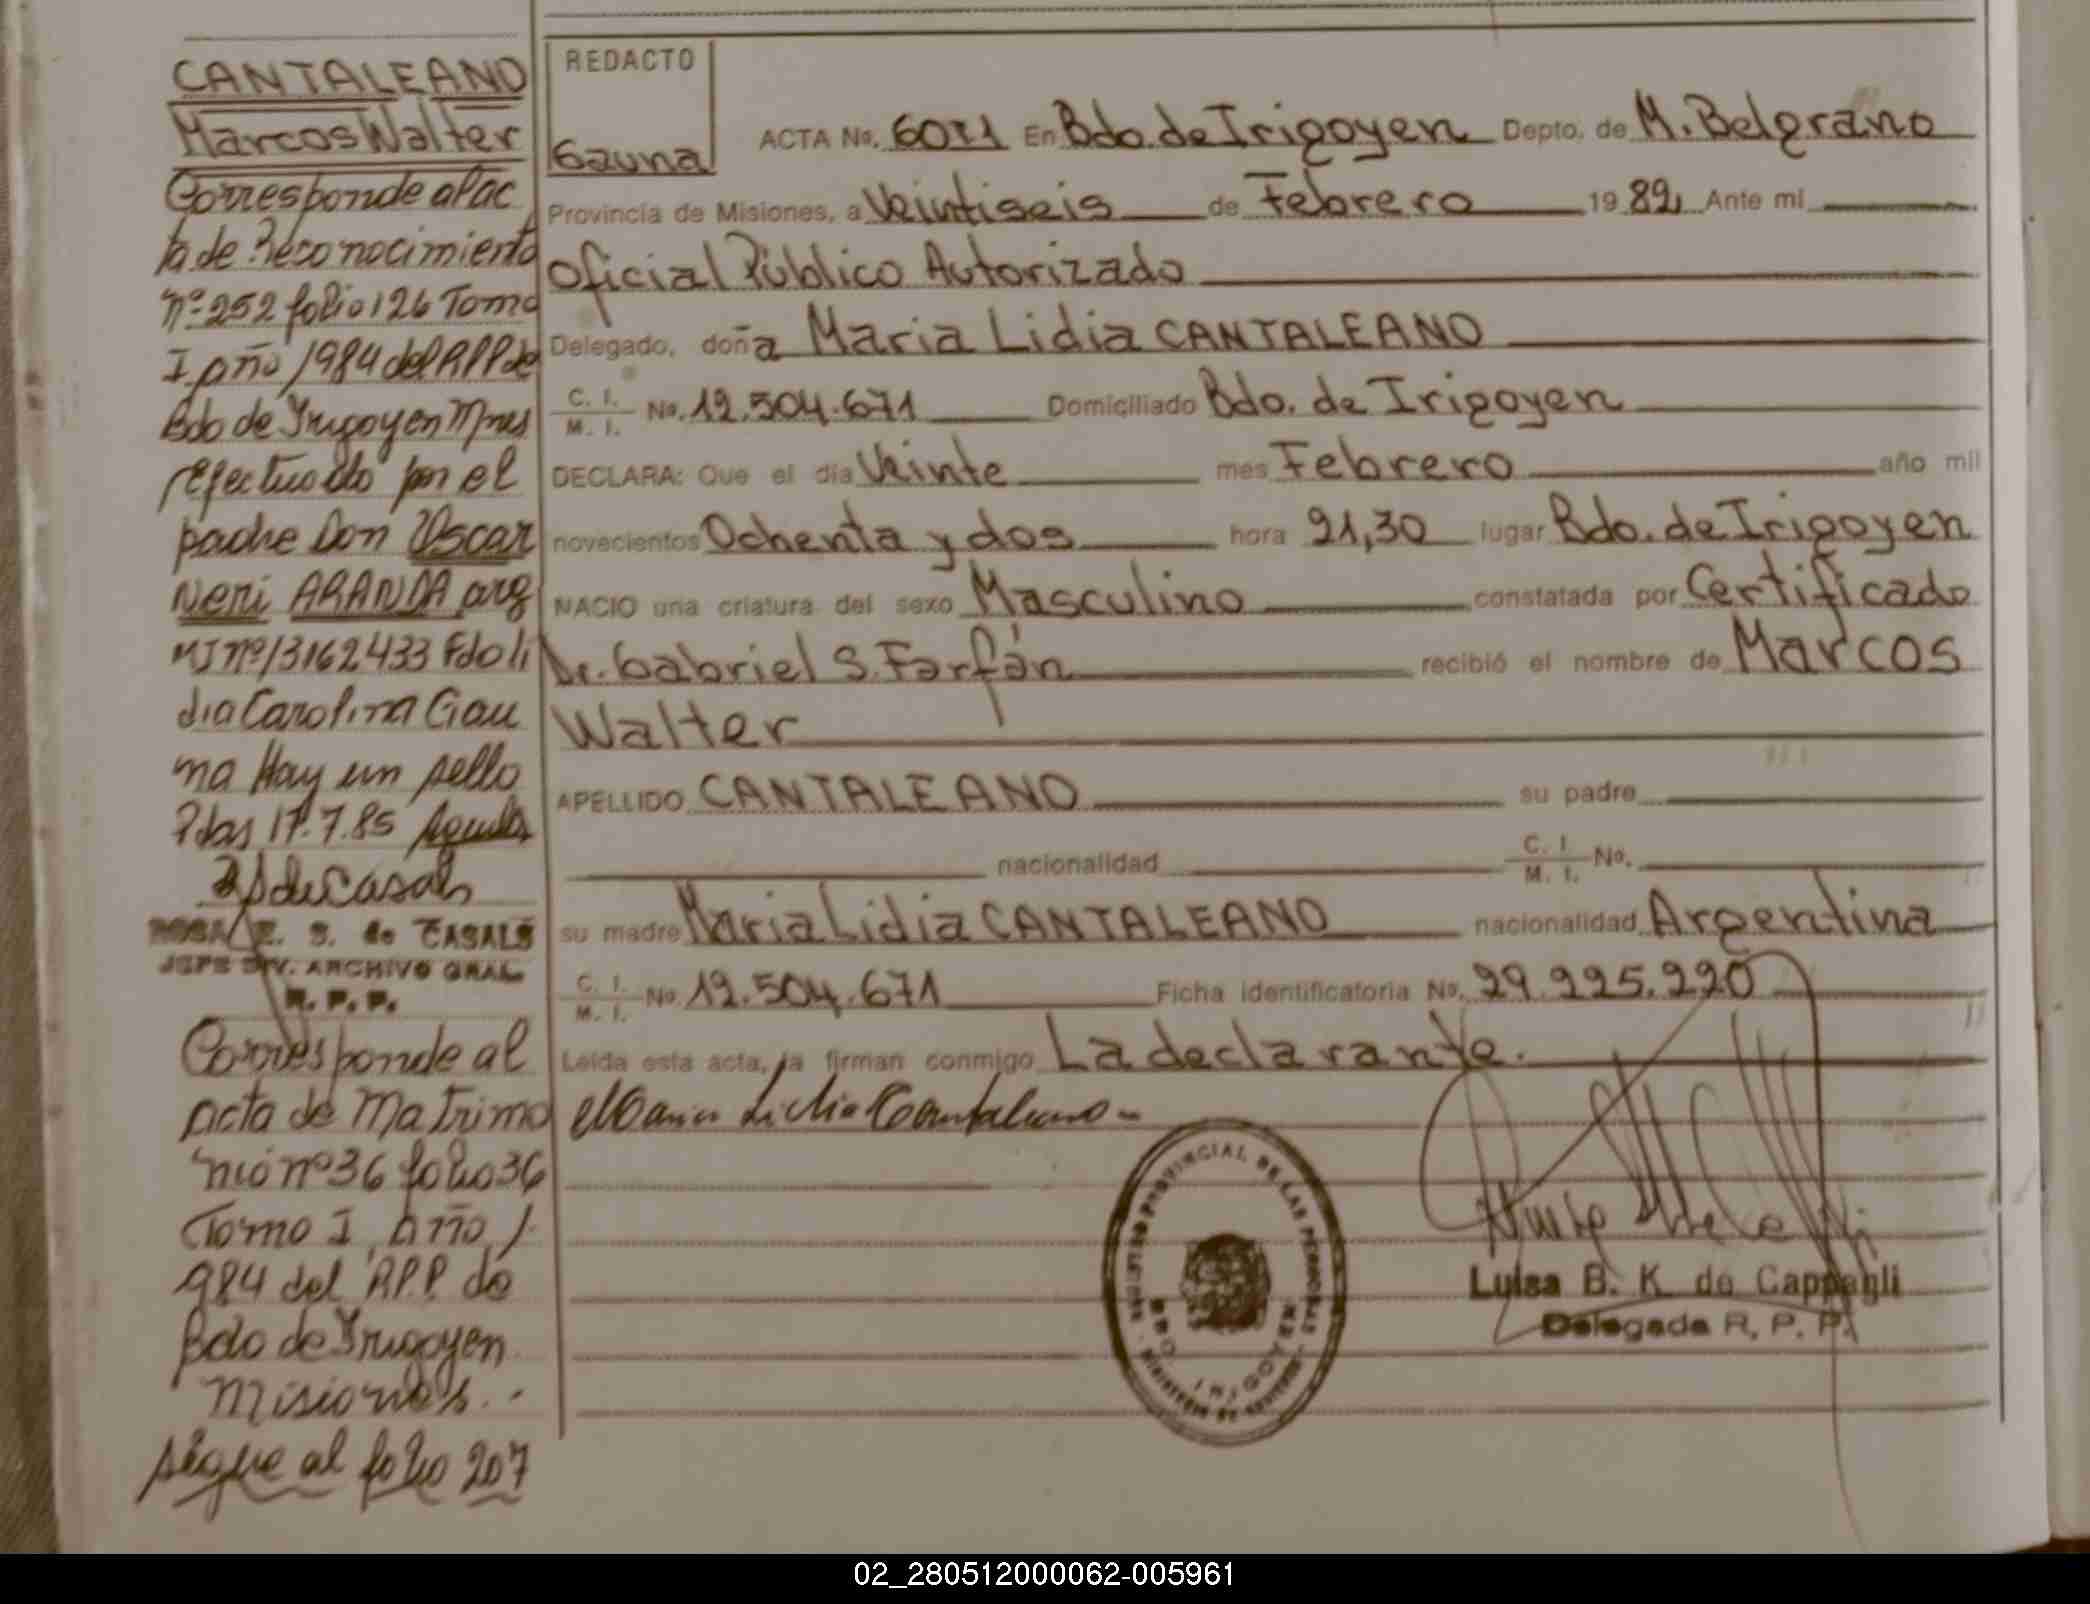 CANTALEANO
Marcos Walter
Corresponde al ac
ta de Reconocimiento
nº 252 folio 126 Tomo
I año 1984 del RPP de
Bdo de Irigoyen Mnes
efectuado por el
padre Don Oscar
Neri ARANDA arg
MI nº 13162433 Fdo li
dia Carolina Gau
na Hay un sello
Pdas 17.7.85
ROSA E. S. de CASALS
JEFE DIV. ARCHIVO GRAL.
R. P. P.
Corresponde al
acta de Matrimo
nio nº 36 folio 36
Tomo I, Año 1
984 del R.P.P. de
Bdo de Irigoyen
Misiones.-
sigue al folio 207
REDACTO
Gauna
ACTA No. 6011 En Bdo. de Irigoyen Depto. de M. Belgrano
Provincia de Misiones, a Veintiseis de Febrero 1982, Ante mi
Oficial Público Autorizado
Delegado, doña Maria Lidia CANTALEANO
C. I. M. I. No. 12.504.671 Domiciliado Bdo. de Irigoyen
DECLARA: Que el día Veinte mes Febrero año mil
novecientos Ochenta y dos hora 21,30 lugar Bdo. de Irigoyen
NACIO una criatura del sexo Masculino constatada por Certificado
Dr. Gabriel S. Farfán recibió el nombre de Marcos
Walter
APELLIDO CANTALEANO su padre
nacionalidad C. I. M. I. No.
su madre Maria Lidia CANTALEANO nacionalidad Argentina
C. I. M. I. No. 12.504.671 Ficha identificatoria No. 29.225.220
Leída esta acta, la firman conmigo La declarante.
Maria Lidia Cantaleano
REGISTRO PROVINCIAL DE LAS PERSONAS
BDO. IRIGOYEN
Luisa B. K. de Cappagli
Delegada R. P. P.
02_280512000062-005961